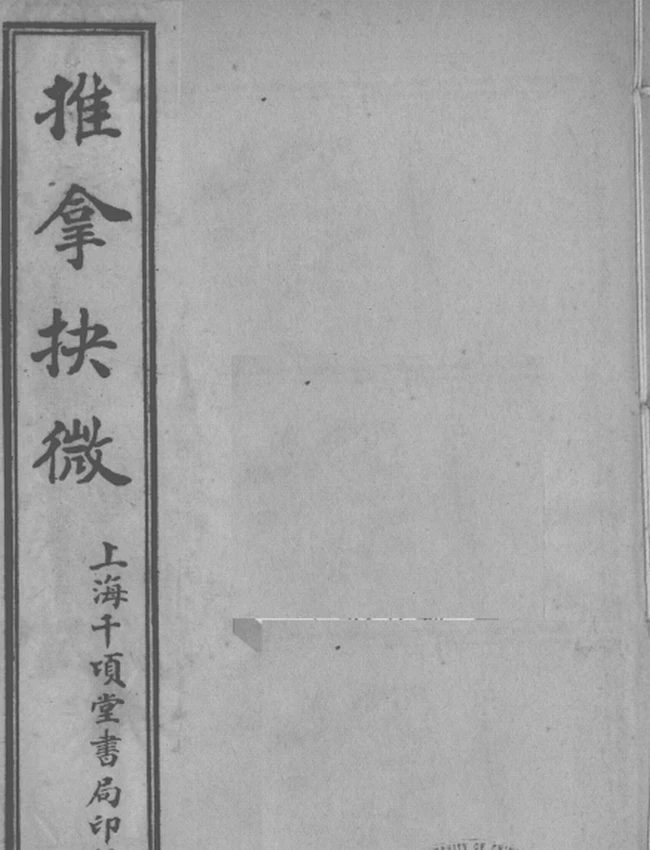 推拿抉微
上海千頃堂書局印